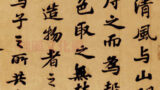 清風与山
得之而為聲
色取之無禁
造物者之
与子之所共